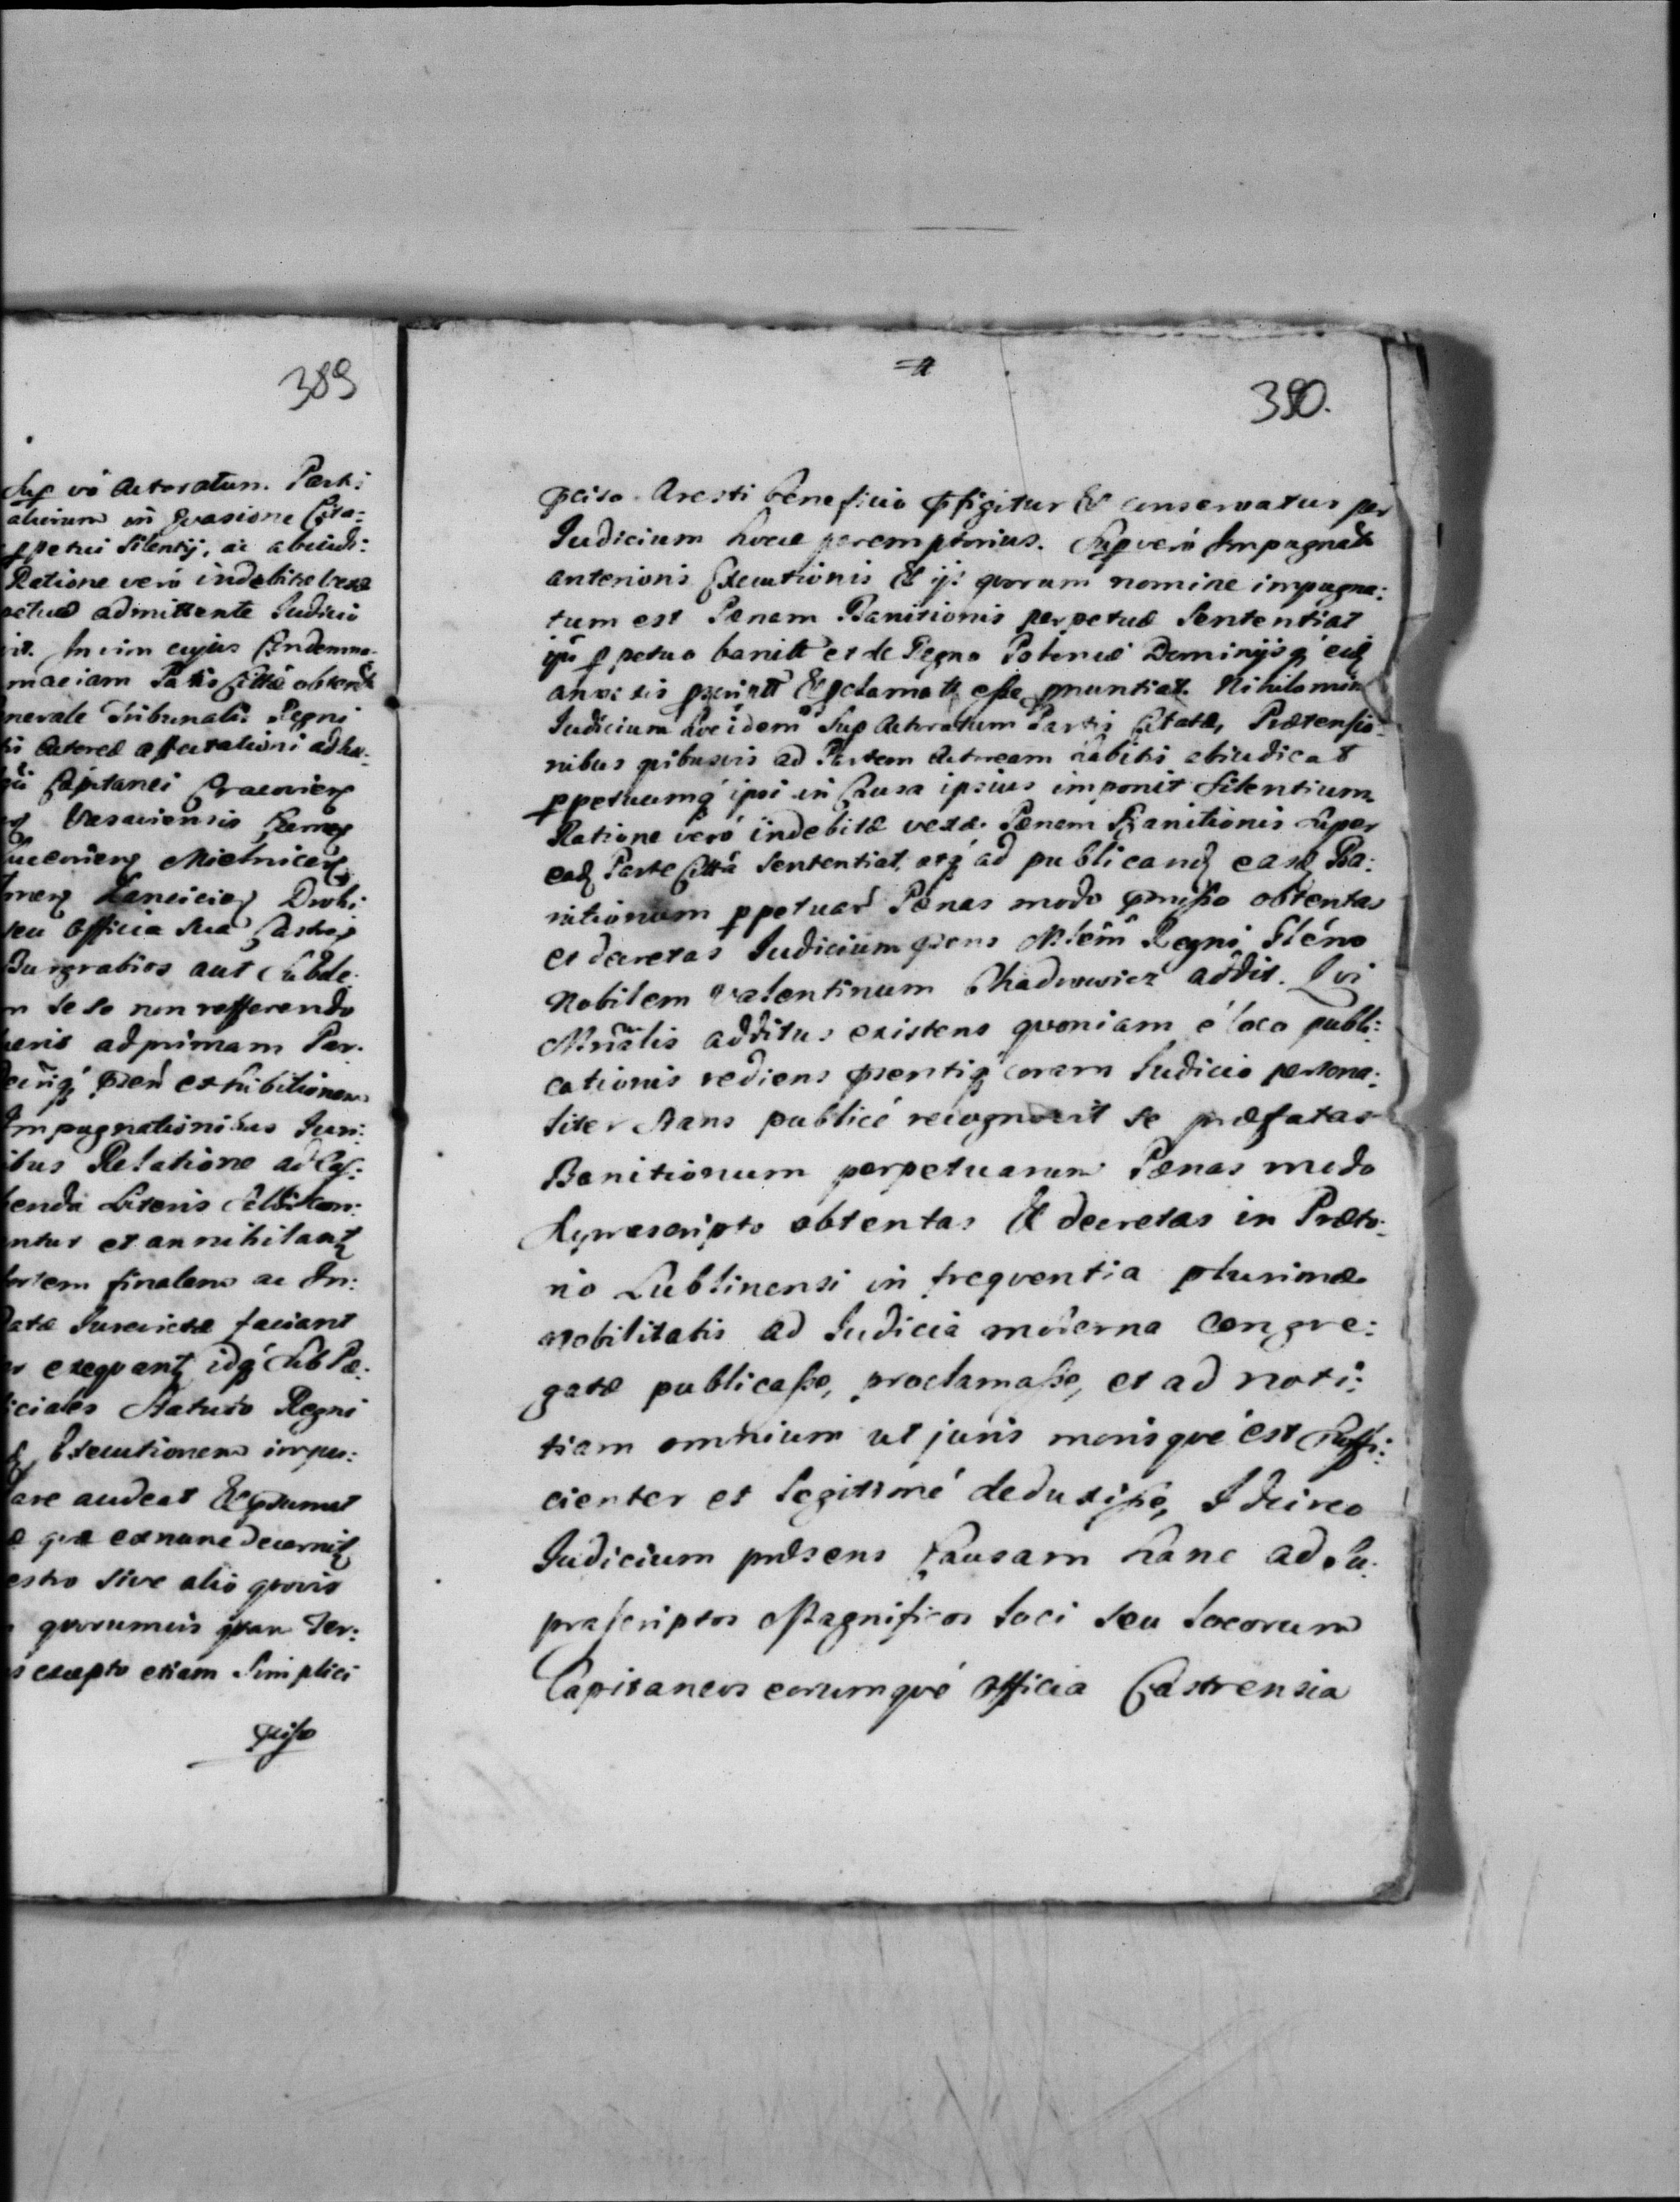 389
Sup vō Actoratum. Parti
alterum in Evasione Cita:
ppetui Silentij, ac abiudi:
Ratione verò indebitæ vexæ
petuæ admittente Judicio
vit. In vim cujus Condemna-
nerale Tribunalis Regni
Capitanei Cracovien
Varaviensis
Mielnicen
Lanicien Drohi
seu Officia Sua Castren
Burgrabios aut Subde
n se so non refferendo
ad primam Par.
psēn exhibitionem
Impugnationibus Juri:
ibus Relatione ad
enda Literis
ntur et annihilant
ortem finalem ac In:
atæ Jurevictæ faciant
r exequant idq́ Sub Pæ:
iciales Statuto Regni
Executionem impu:
are audeat Et
quæ exnunc decernit
estro sive alio quovis
quorumvis
s excepto etiam Simplici
pciso
390.
pciso Aresti beneficio pfigitur Et conservatur per
Judicium hocce peremptorius. Sup verò Impugnat
anterioris Executionis Et ijs quorum nomine impugna:
tum est Pænam Banitionis perpetuæ Sententiat
ppetuo banitt et de Regno Poloniæ Dominijsq́ eid
annexis Et pclamatt esse pnuntiat. Nihilomin
Judicium hoc idem Sup Actoratum Partis Citatæ, Prætensio:
nibus quibusvis ad Partem Actoream habitis abiudicat
ppetuumq́ ipsi in Causa ipsius imponit Silentium.
Ratione verò indebitæ vexæ Pænam Banitionis super
ead Parte Citta Sententiat, atq́ ad publicand easd Ba:
nitionum ppetuar Pænas modo pmisso obtentas
et decretas Judicium psens Mlēm Regni Glēno
Nobilem Valentinum Chadowicz addit. Qui
Mrialis additus existens quoniam è loco publi:
cationis rediens psentiq́ coram Judicio persona:
liter stans publicè recognovit se præfatas
Banitionum perpetuarum Pænas modo
suprascripto obtentas Et decretas in Præto:
rio Lublinensi in frequentia plurimæ
Nobilitatis ad Judicia moderna congre:
gatæ publicasse, proclamasse, et ad noti:
tiam omnium ut juris moris què est suffi:
cienter et legitimè deduxisse, Idcirco
Judicium præsens Causam hanc ad Su:
prascriptos Magnificos loci seu locorum
Capitaneos eorumquè Officia Castrensia